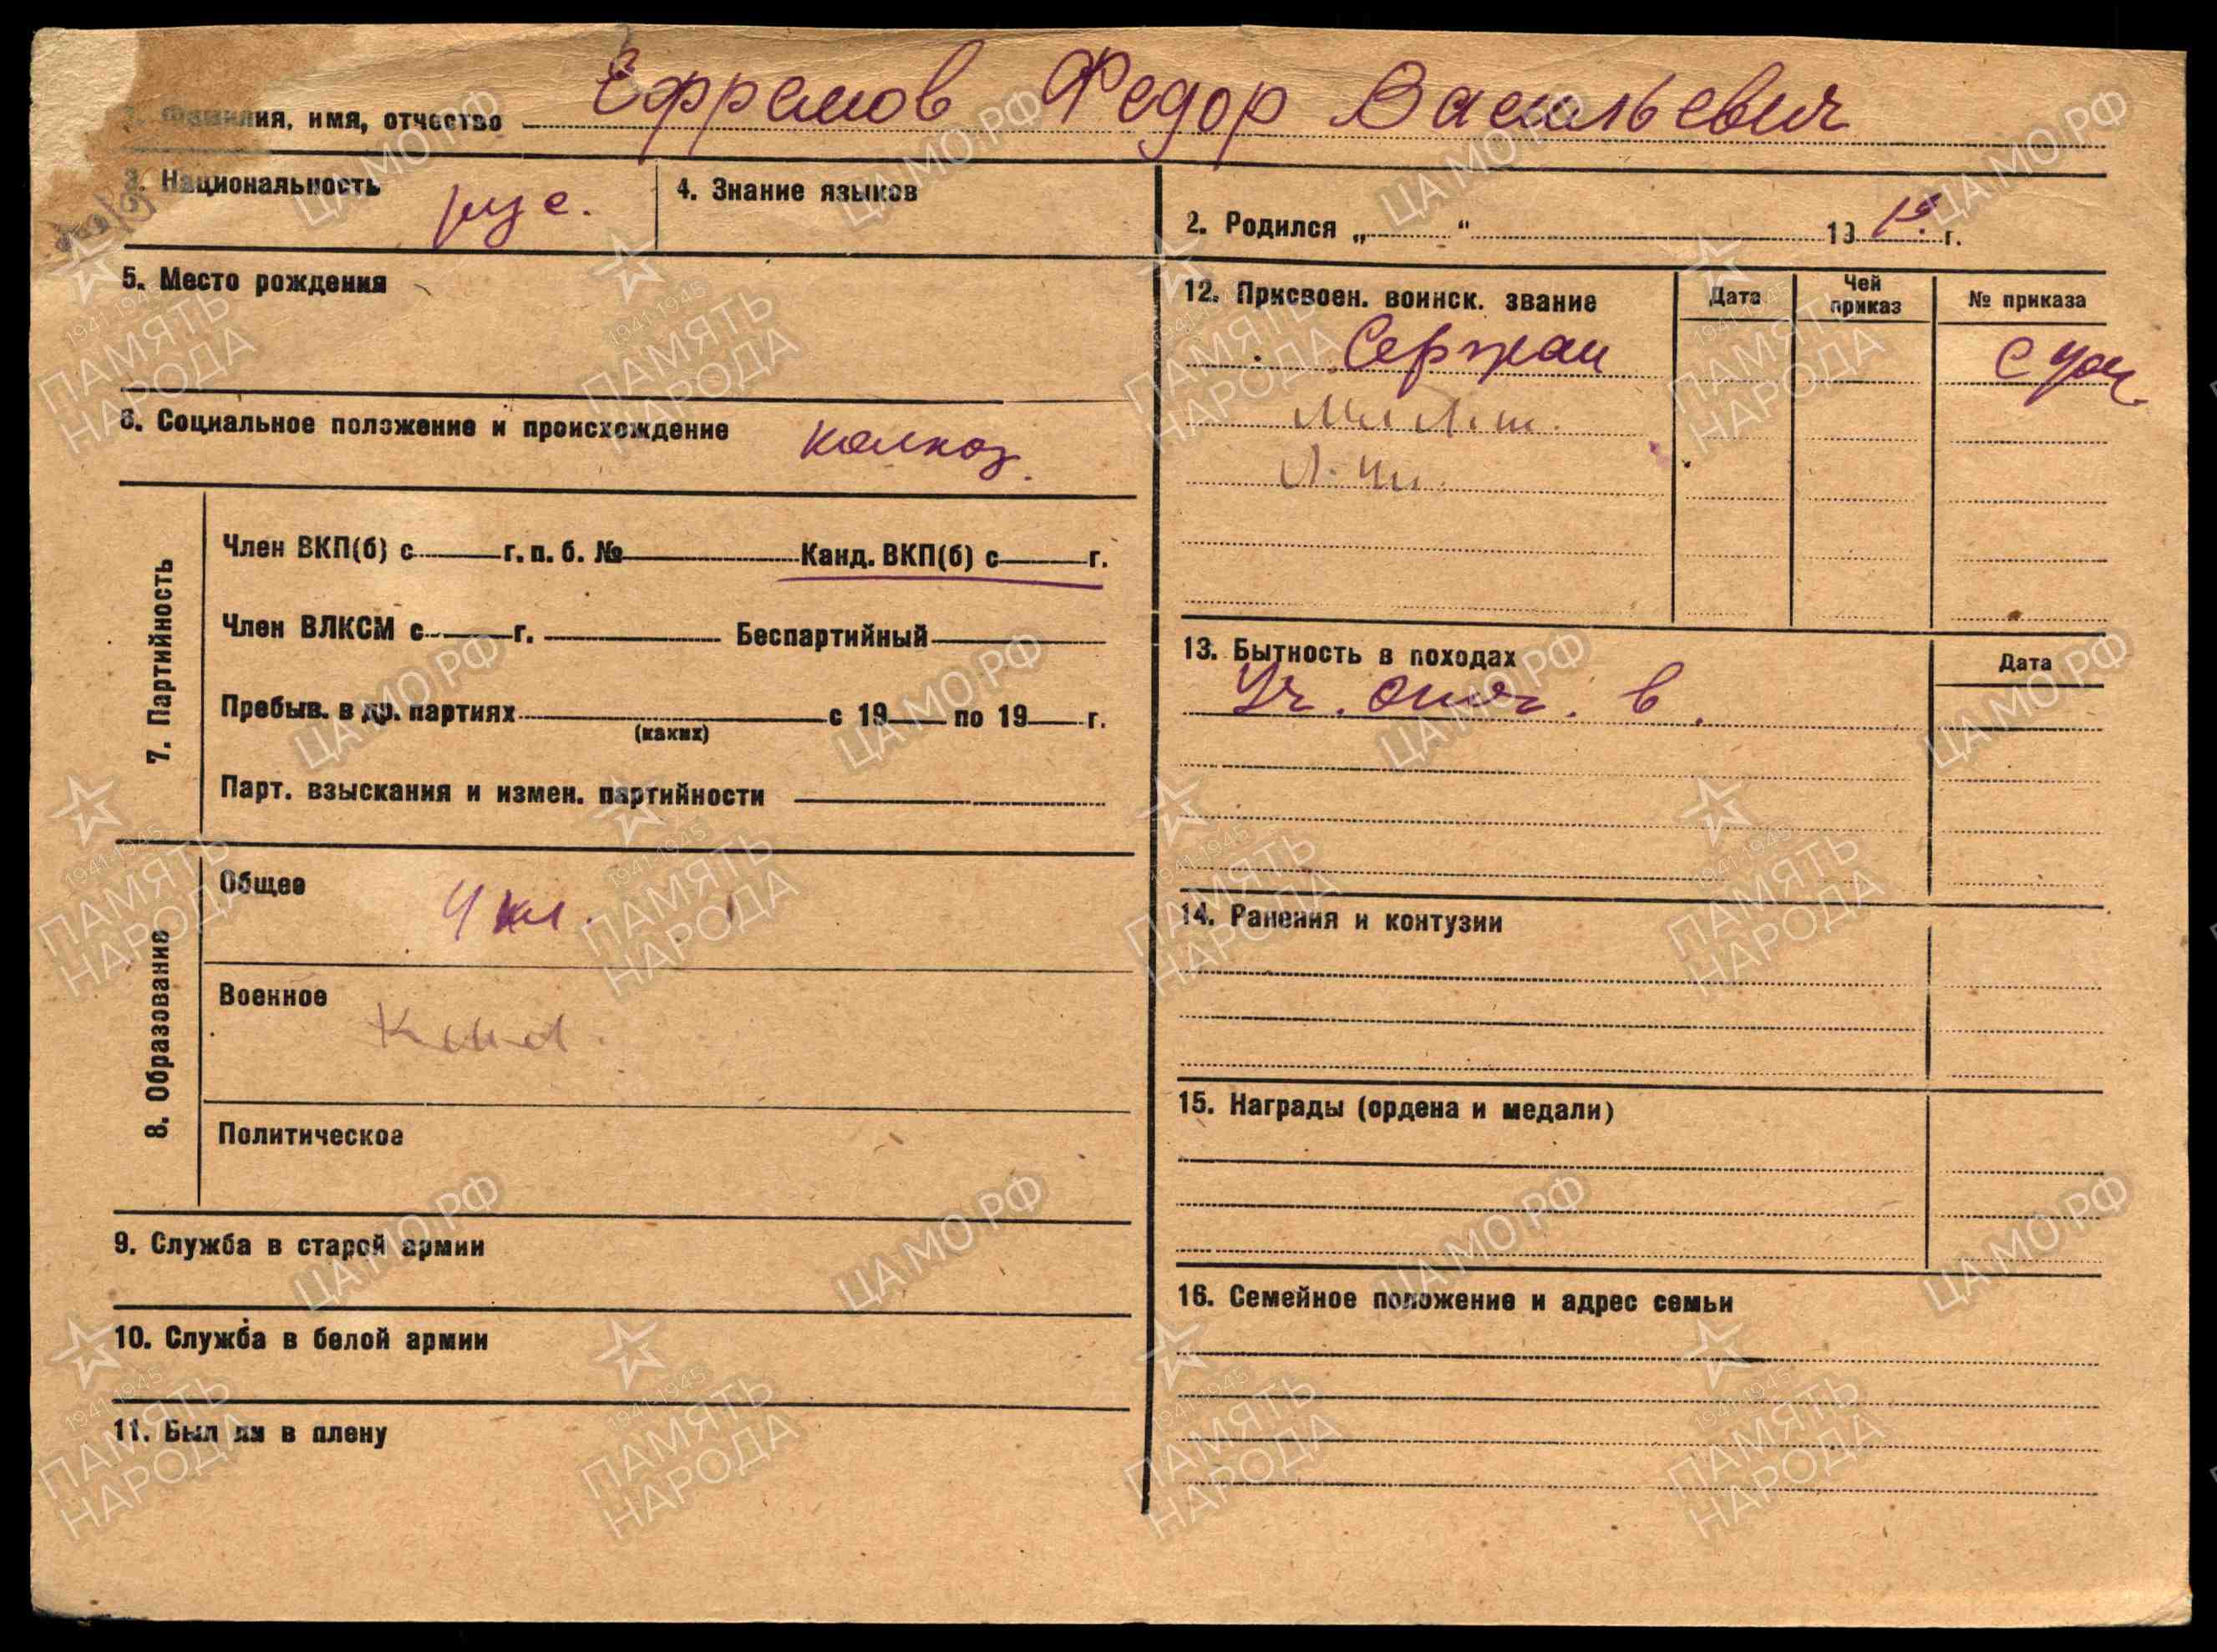 1. Фамилия, имя, отчество Ефремов Федор Васильевич
3. Национальность рус. 4. Знание языков
2. Родился „ “ 19 г.
5. Место рождения
6. Социальное положение и происхождение колхоз.
7. Партийность
Член ВКП(б) с г. п. б. № Канд. ВКП(б) с г.
Член ВЛКСМ с г. Беспартийный
Пребыв. в др. партиях с 19 по 19 г.
(каких)
Парт. взыскания и измен. партийности
8. Образование
Общее 4 кл.
Военное
Политическое
9. Служба в старой армии
10. Служба в белой армии
11. Был ли в плену
12. Присвоен. воинск. звание Дата Чей приказ № приказа
Сержан
13. Бытность в походах Дата
Уч. отеч. в.
14. Ранения и контузии
15. Награды (ордена и медали)
16. Семейное положение и адрес семьи
ЦАМО.РФ
1941-1945
ПАМЯТЬ
НАРОДА